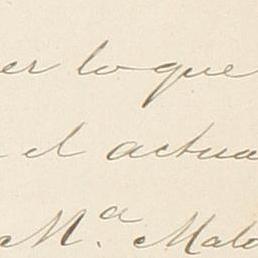 er lo que
el actua
Mª. Malo